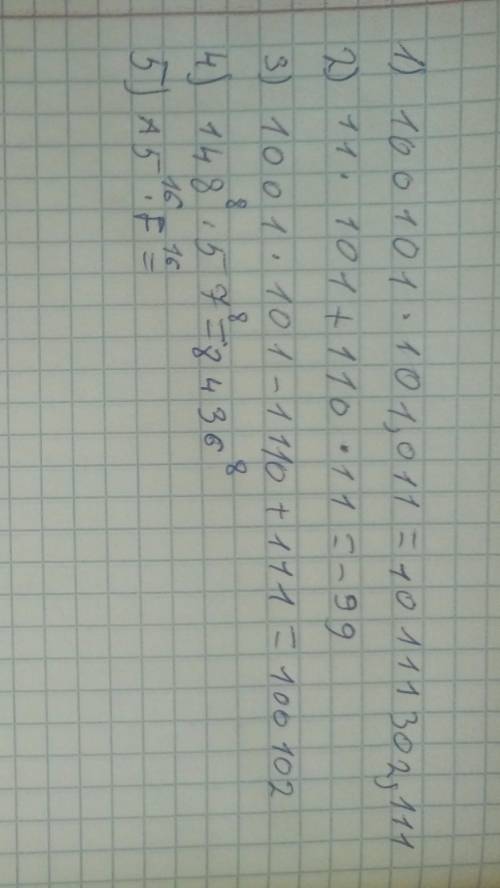 1) 100101 · 101,011 = 10111302,111
2) 11 · 101 + 110 · 11 = - 99
3) 1001 · 101 - 1110 + 111 = 100102
4) 148⁸ · 57⁸ = 8436⁸
5) A5¹⁶ · F¹⁶ =